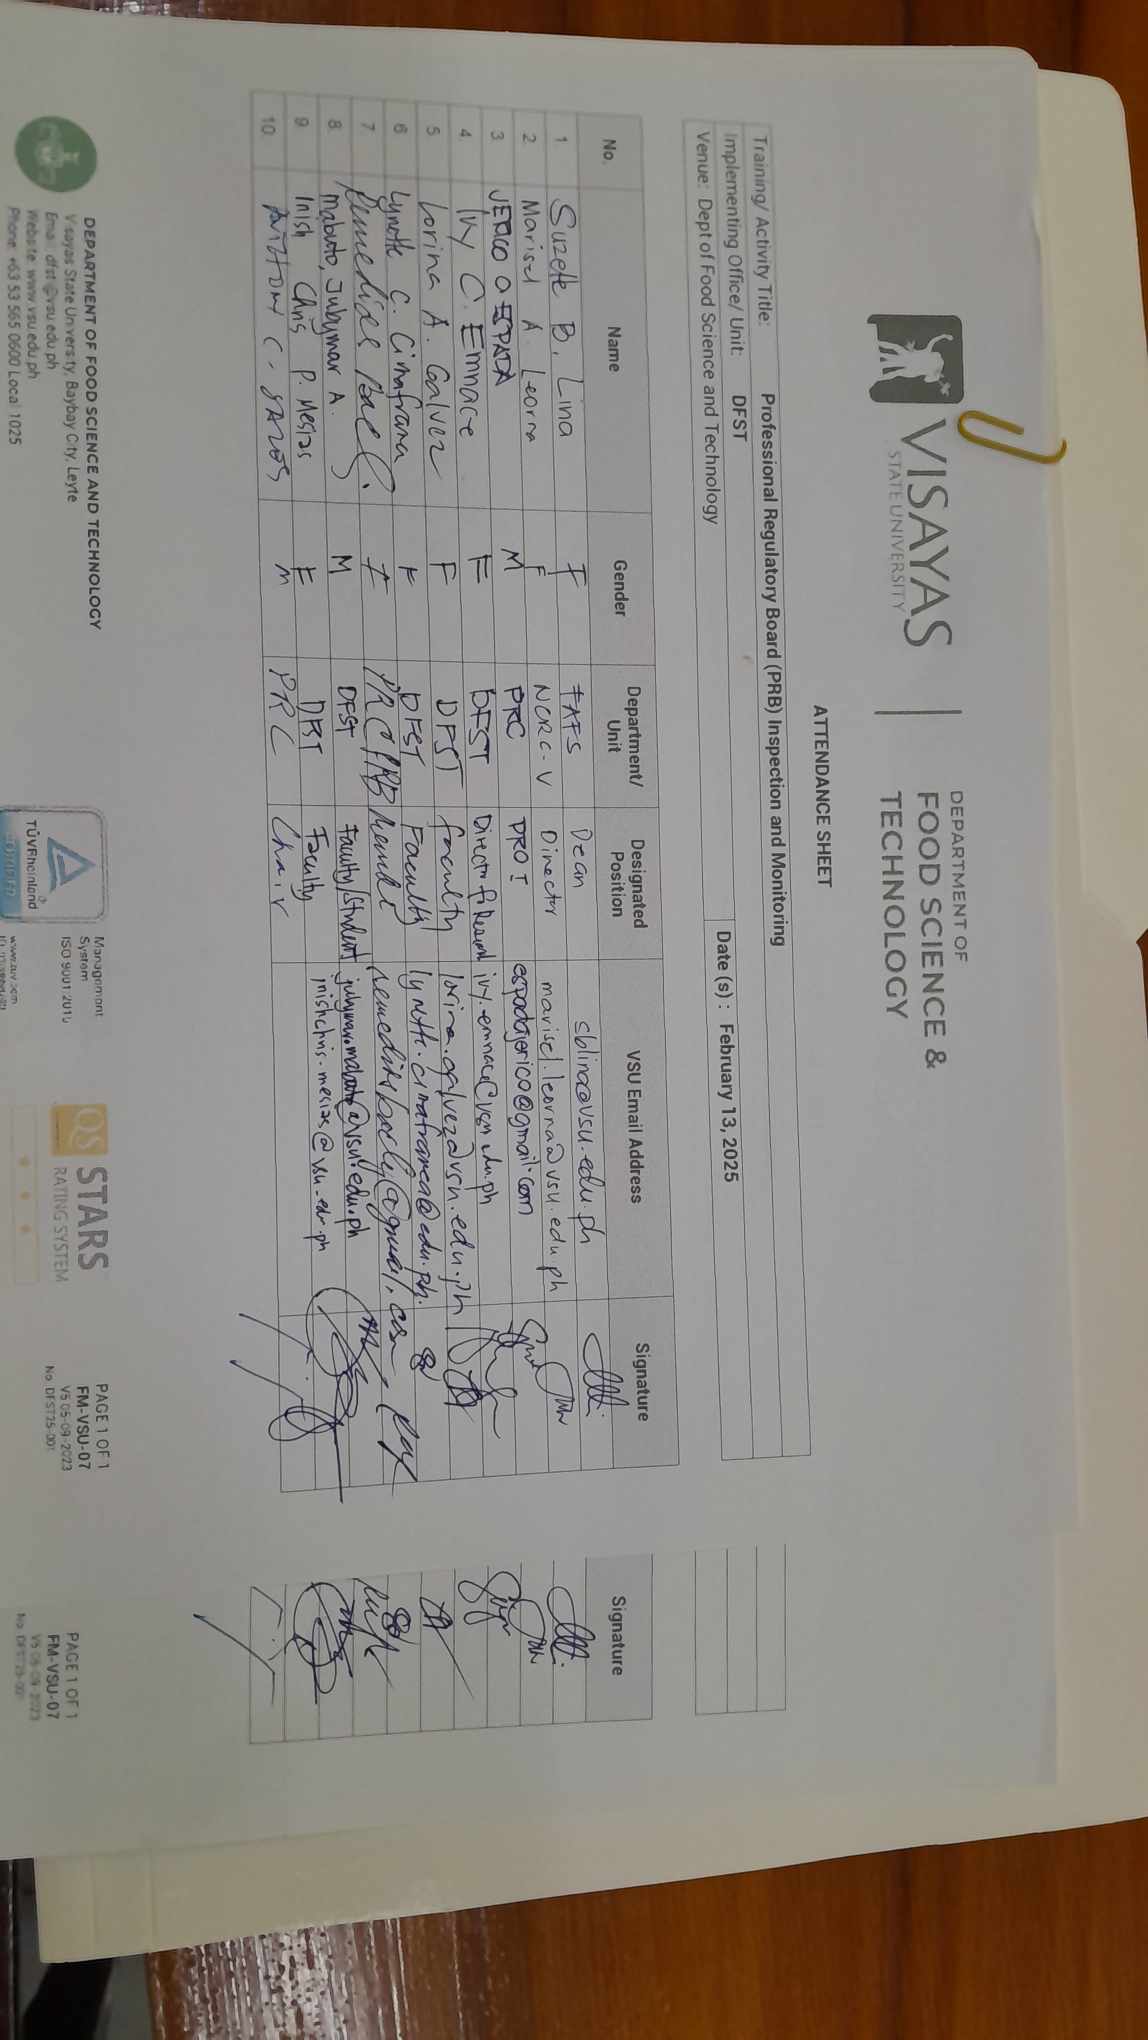 VISAYAS
STATE UNIVERSITY
DEPARTMENT OF
FOOD SCIENCE &
TECHNOLOGY
ATTENDANCE SHEET
Training/ Activity Title: Professional Regulatory Board (PRB) Inspection and Monitoring
Implementing Office/ Unit: DFST Date (s) : February 13, 2025
Venue: Dept of Food Science and Technology
No. Name Gender Department/ Unit Designated Position VSU Email Address Signature Signature
1 Suzette B. Lina F FAFS Dean sblina@vsu.edu.ph
2 Marisel A. Leorna F NCRC-V Director marisel.leorna@vsu.edu.ph
3 JERICO O ESPADA M PRC PRO I espadajerico@gmail.com
4 Ivy C. Emnace F DFST ivy.emnace@vsu.edu.ph
5 Lorina A. Galvez F DFST faculty lorina.galvez@vsu.edu.ph
6 Lynette C. Cimafranca F DFST Faculty lynette.cimafranca@edu.ph.
7 Remedios f PRC/PRB
8 Mabuto, Julymar A. M DFST Faculty/Student julymar.mabuto@vsu.edu.ph
9 Inish Chris P. Mesias F DFST Faculty inishchris.mesias@vsu.edu.ph
10 C. m PRC Chair
DEPARTMENT OF FOOD SCIENCE AND TECHNOLOGY
Visayas State University, Baybay City, Leyte
Email: dfst@vsu.edu.ph
Website: www.vsu.edu.ph
Phone: +63 53 565 0600 Local 1025
TÜVRheinland
CERTIFIED
Management
System
ISO 9001:2015
www.tuv.com
QS STARS
RATING SYSTEM
PAGE 1 OF 1
FM-VSU-07
V5 05-09-2023
No. DFST25-001
PAGE 1 OF 1
FM-VSU-07
V5 05-09-2023
No. DFST25-001